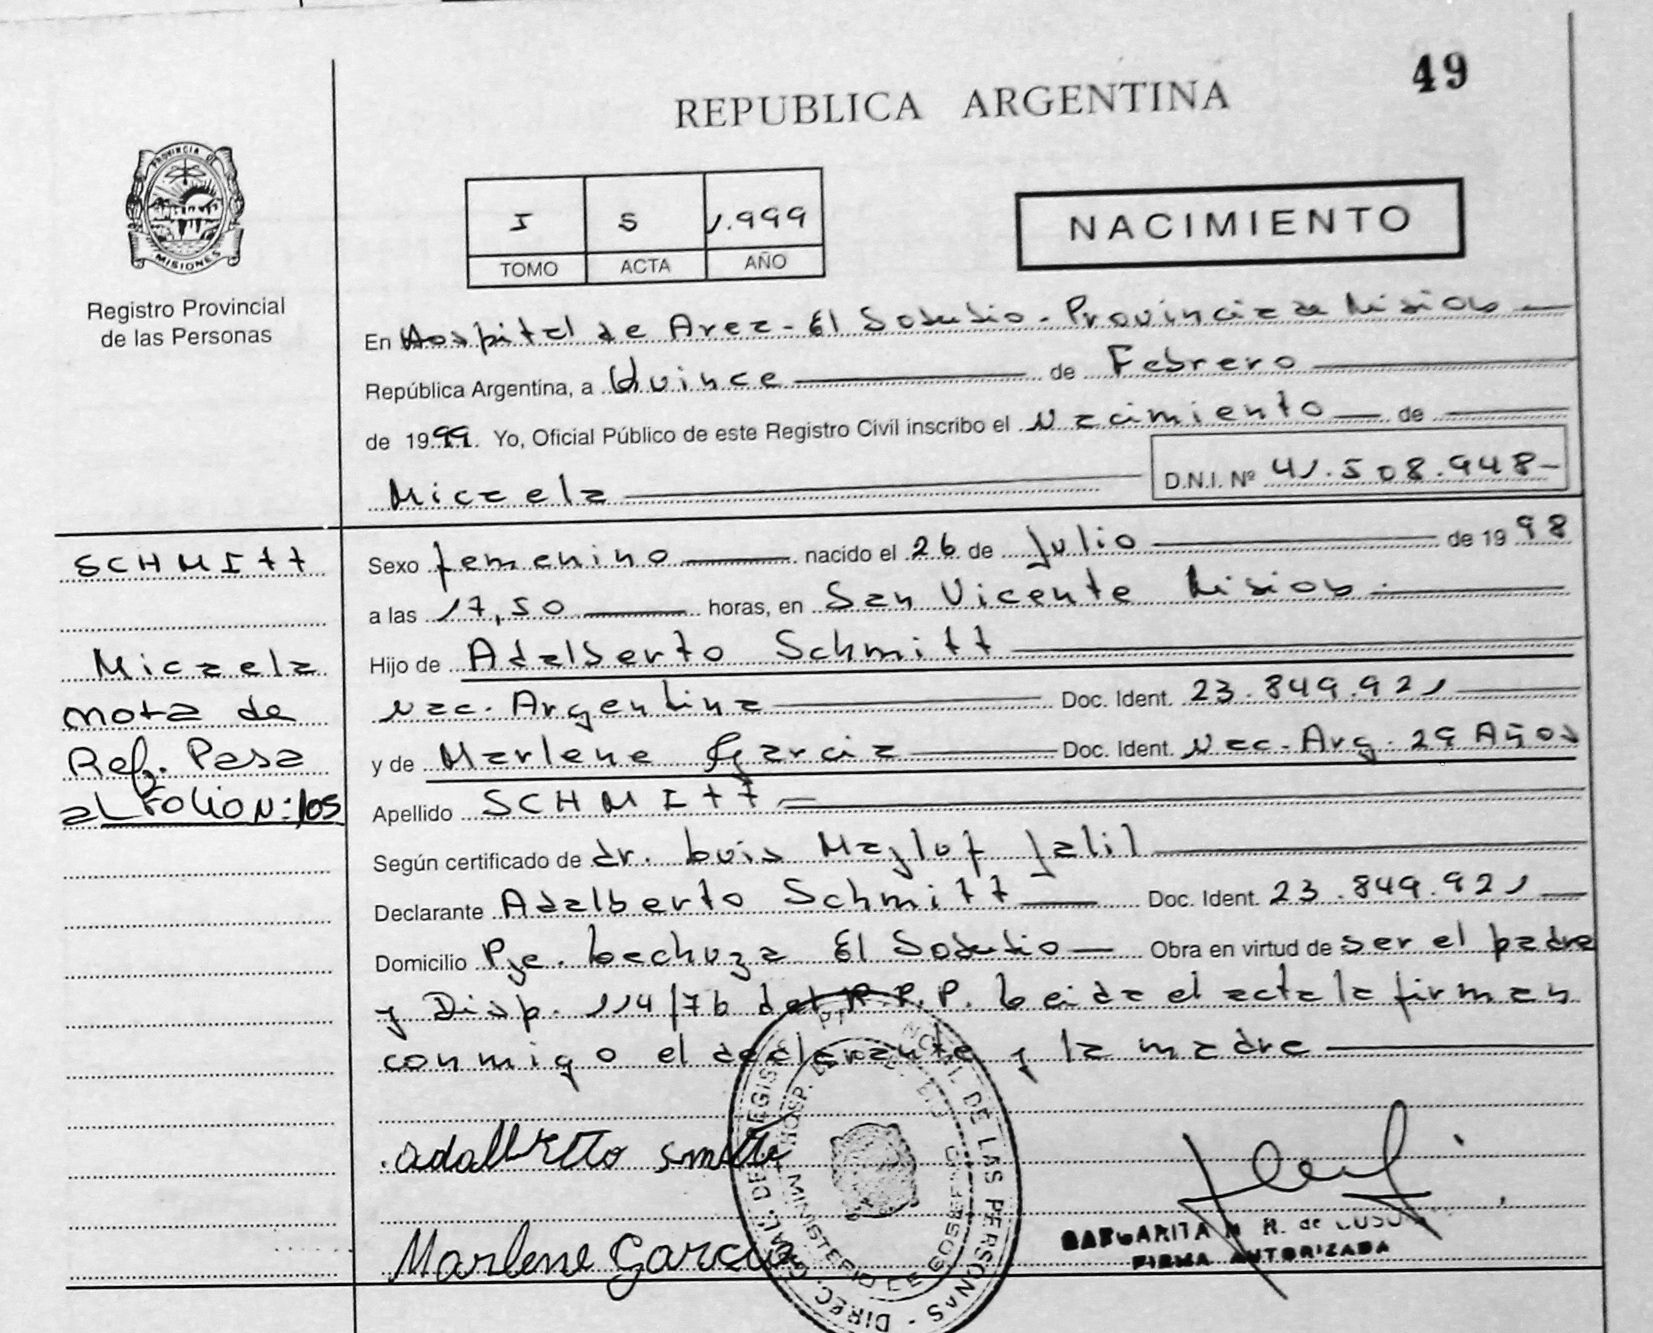 49
REPUBLICA ARGENTINA
PROVINCIA DE
MISIONES
Registro Provincial
de las Personas
I 5 1.999
TOMO ACTA AÑO
NACIMIENTO
En Hospital de Area - El Soberbio - Provincia de Misiones
República Argentina, a Quince de Febrero
de 1999. Yo, Oficial Público de este Registro Civil inscribo el Nacimiento de
Micaela D.N.I. Nº 41.508.948-
SCHMITT
Micaela
nota de
Ref. Pasa
al FOLION: 105
Sexo femenino nacido el 26 de Julio de 1998
a las 17,50 horas, en San Vicente Misiones
Hijo de Adalberto Schmitt
Nac. Argentina Doc. Ident. 23.849.921
y de Marlene Garcia Doc. Ident. Nac. Arg. 29 Años
Apellido SCHMITT
Según certificado de dr. Luis Jalil
Declarante Adalberto Schmitt Doc. Ident. 23.849.921
Domicilio Pje. Lechuza El Soberbio Obra en virtud de ser el padre
y Disp. 114/76 del R.P.P. Leida el acta la firman
conmigo el declarante y la madre
adalberto
Marlene Garcia
DIREC. GRAL. DE REGISTRO DE LAS PERSONAS
MINISTERIO DE GOBIERNO
MARGARITA R. de
FIRMA AUTORIZADA